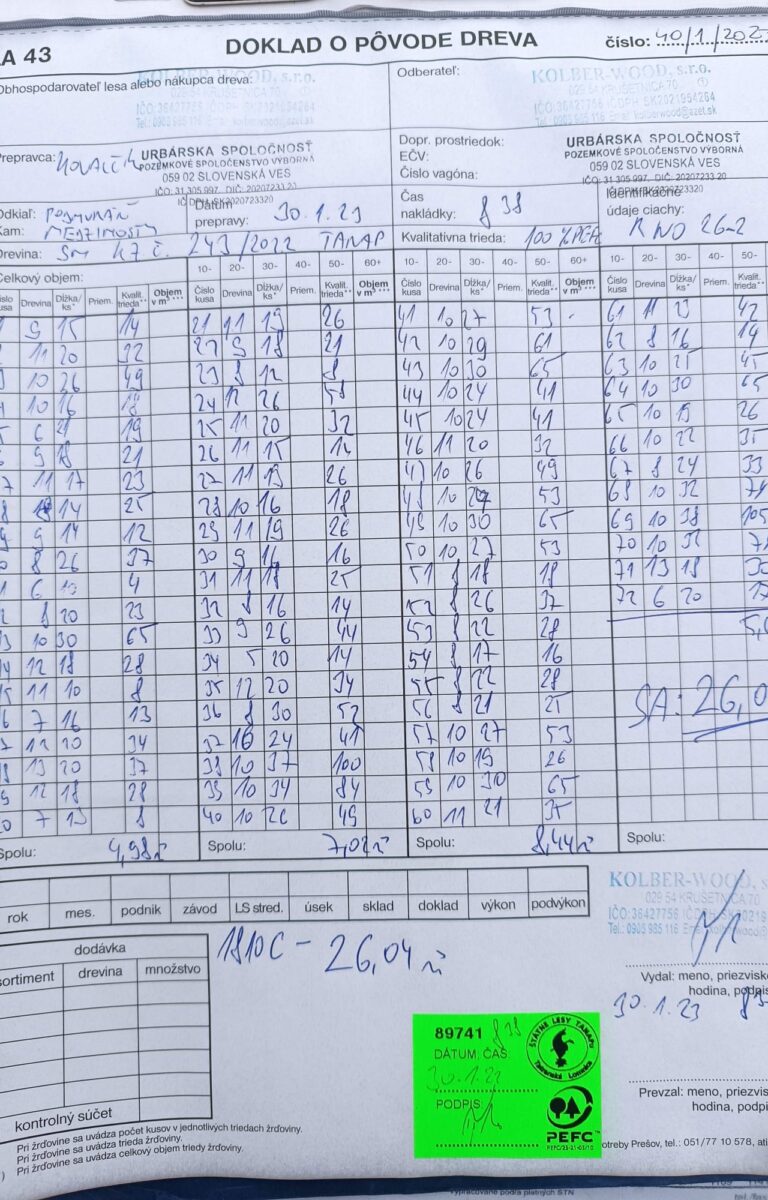 LA 43
DOKLAD O PÔVODE DREVA
číslo: 40/1/202
Obhospodarovateľ lesa alebo nákupca dreva:
KOLBER-WOOD, s.r.o.
029 54 KRUŠETNICA 70
IČO: 36427756 IČ DPH SK2021954264
Tel.: 0903 985 116 Email: kolberwood@azet.sk
Odberateľ:
KOLBER-WOOD, s.r.o.
029 54 KRUŠETNICA 70
IČO: 36427756 IČ DPH SK2021954264
Tel.: 0903 985 116 Email: kolberwood@azet.sk
Prepravca:
URBÁRSKA SPOLOČNOSŤ
POZEMKOVÉ SPOLOČENSTVO VÝBORNÁ
059 02 SLOVENSKÁ VES
IČO: 31 305 997, DIČ: 20207233 20
Dopr. prostriedok:
EČV:
Číslo vagóna:
URBÁRSKA SPOLOČNOSŤ
POZEMKOVÉ SPOLOČENSTVO VÝBORNÁ
059 02 SLOVENSKÁ VES
Odkiaľ:
Kam:
Dátum prepravy: 30.1.23
Čas nakládky: 8 38
Identifikačné údaje ciachy: R NO 26-2
Drevina: SM K7 č. 243/2022 TANAP
Kvalitatívna trieda: 100% PEFC
Celkový objem:
10- 20- 30- 40- 50- 60+
10- 20- 30- 40- 50- 60+
10- 20- 30- 40- 50-
Číslo kusa Drevina Dĺžka/ks* Priem. Kvalit. trieda** Objem v m³***
Číslo kusa Drevina Dĺžka/ks* Priem. Kvalit. trieda** Objem v m³***
Číslo kusa Drevina Dĺžka/ks* Priem. Kvalit. trieda** Objem v m³***
Číslo kusa Drevina Dĺžka/ks* Priem. Kvalit. trieda**
9 15 14 21 11 19 26 41 10 27 53 61 11 23 42
11 20 32 22 9 18 21 42 10 29 61 62 8 16 14
10 26 49 23 8 12 8 43 10 30 65 63 10 25 45
10 16 18 24 12 26 58 44 10 24 41 64 10 30 65
6 21 19 25 11 20 32 45 10 24 41 65 10 19 26
9 18 21 26 11 15 46 11 20 32 66 10 22 35
11 17 23 27 11 19 26 47 10 26 49 67 8 24 33
14 25 28 10 16 18 48 10 27 53 68 10 32
9 14 12 29 11 19 26 49 10 30 65 69 10 38 105
8 26 37 30 9 16 16 50 10 27 53 70 10
6 10 4 31 11 18 25 51 8 18 18 71 13 18 30
8 20 23 32 8 16 14 52 8 26 37 72 6 20
10 30 65 33 9 26 44 53 8 22 28
12 18 28 34 5 20 14 54 8 17 16
11 10 8 35 12 20 34 55 8 22 28
7 16 13 36 8 30 52 56 8 21 25
12 20 34 37 10 24 41 57 10 27 53
13 20 37 38 10 37 100 58 10 19 26
12 18 28 39 10 34 84 59 10 30 65
7 13 8 40 10 26 49 60 11 21 35
SA: 26,0
Spolu: 4,98
Spolu: 7,02
Spolu: 8,44
Spolu:
rok mes. podnik závod LS stred. úsek sklad doklad výkon podvýkon
KOLBER-WOOD, s
029 54 KRUŠETNICA 70
dodávka
sortiment drevina množstvo
kontrolný súčet
1810C - 26,04
Vydal: meno, priezvisko
hodina, podpis
30.1.23 8
89741 8 38
DÁTUM, ČAS:
30.1.23
PODPIS:
ŠTÁTNE LESY TANAPu
Tatranská Lomnica
PEFC
Prevzal: meno, priezvis
hodina, podpi
Pri žrďovine sa uvádza počet kusov v jednotlivých triedach žrďoviny.
Pri žrďovine sa uvádza trieda žrďoviny.
Pri žrďovine sa uvádza celkový objem triedy žrďoviny.
otreby Prešov, tel.: 051/77 10 578, ati
vypracované podľa platných STN